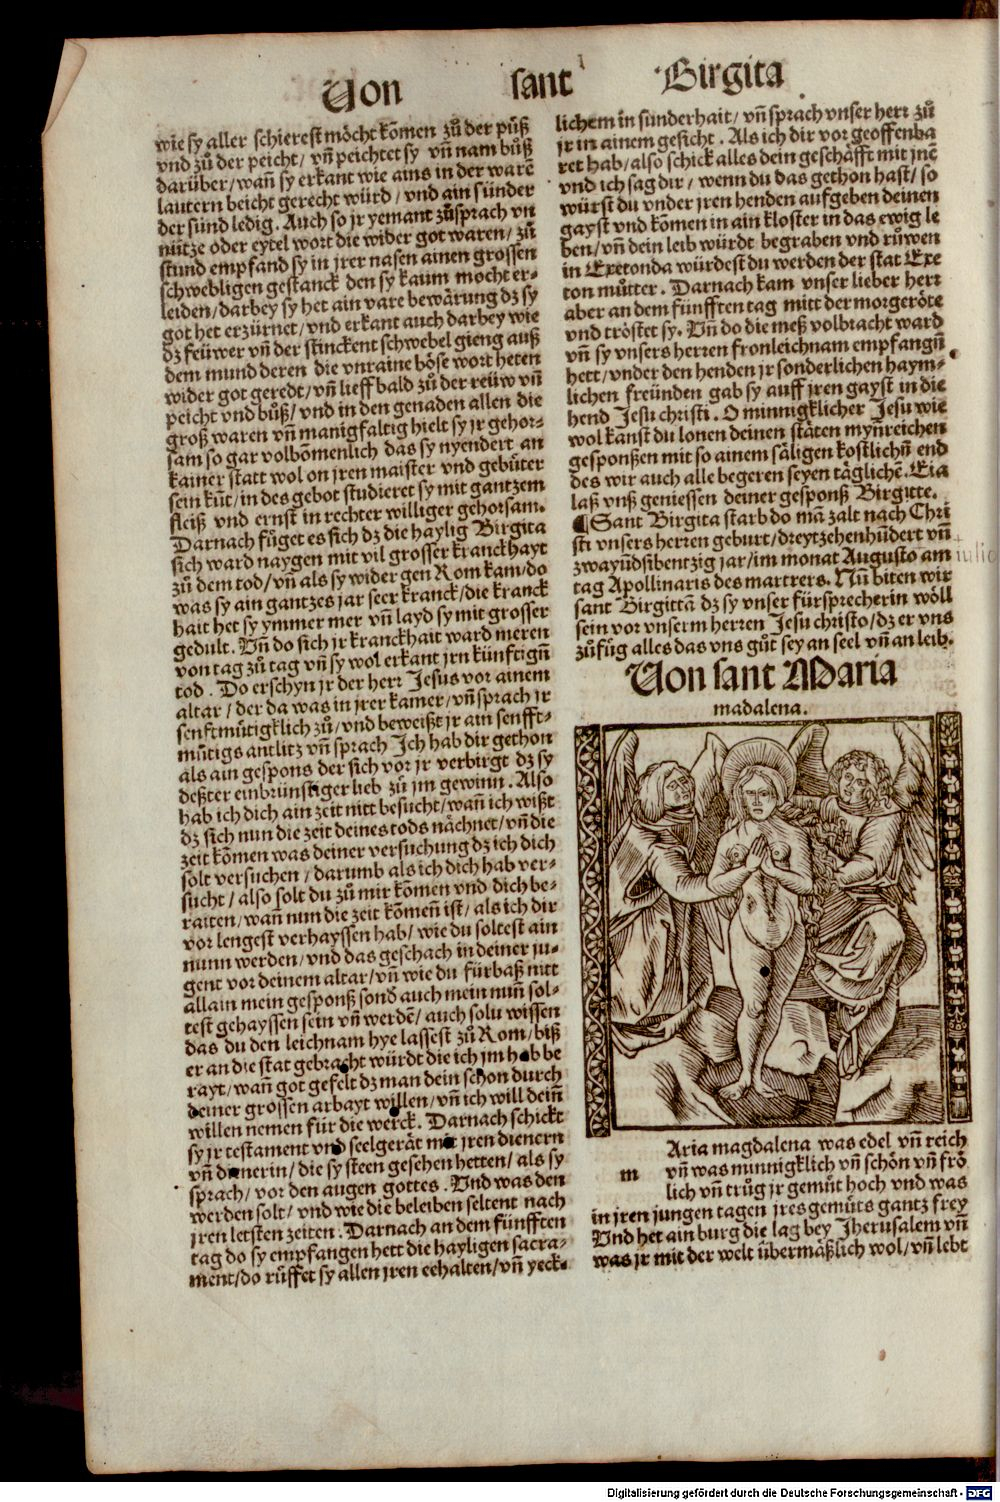 Von sant Birgita
wie sy aller schierest möcht kōmen zů der půß
vnd zů der peicht/ vñ peichtet sy vñ nam bůß
darüber/wañ sy erkant wie ains in der warē
lautern beicht gerecht würd/ vnd ain sünder
der sünd ledig. Auch so jr yemant zůsprach vn
nütze oder eytel wort die wider got waren/ zů
stund empfand sy in jrer nasen ainen grossen
schwebligen gestanck den sy kaum mocht er⸗
leiden/darbey sy het ain vare bewärung dz sy
got het erzürnet/vnd erkant auch darbey wie
dz feüwer vñ der stinckent schwebel gieng auß
dem mund deren die vnraine böse wort heten
wider got geredt/vñ lieff bald zů der reüw vñ
peicht vnd bůß/vnd in den genaden allen die
groß waren vñ manigfaltig hielt sy jr gehor⸗
sam so gar volkōmenlich das sy nyendert an
kainer statt wol on jren maister vnd gebüter
sein kūt/in des gebot studieret sy mit gantzem
fleiß vnd ernst in rechter williger gehorsam.
Darnach füget es sich dz die haylig Birgita
sich ward naygen mit vil grosser kranckhayt
zů dem tod/vñ als sy wider gen Rom kam/do
was sy ain gantzes jar seer kranck/die kranck
hait het sy ymmer mer vñ layd sy mit grosser
gedult. Vñ do sich jr kranckhait ward meren
von tag zů tag vñ sy wol erkant jrn künftigñ
tod. Do erschyn jr der herr Jesus vor ainem
altar/der da was in jrer kamer/vñ sprach jr
senftmůtigklich zů/vnd beweißt jr ain senfft⸗
můtigs antlitz vñ sprach Ich hab dir gethon
als ain gespons der sich vor jr verbirgt dz sy
deßter einbrünstiger lieb zů jm gewinn. Also
hab ich dich ain zeit nitt besucht/wañ ich wißt
dz sich nun die zeit deines tods nächnet/vñ die
zeit kōmen was deiner versuchung dz ich dich
solt versuchen/darumb als ich dich hab ver⸗
sucht/also solt du zů mir kōmen vnd dich be⸗
raiten/wañ nun die zeit kōmeñ ist/als ich dir
vor lengest verhayssen hab/wie du soltest ain
nunn werden/vnd das geschach in deiner ju⸗
gent vor deinem altar/vñ wie du fürbaß nitt
allain mein gesponß sond auch mein nuñ sol⸗
test gehayssen sein vñ werdē/auch solu wissen
das du den leichnam hye lassest zů Rom/biß
er an die stat gebracht würdt die ich jm hab be
rayt/wañ got gefelt dz man dein schon durch
deiner grossen arbayt willen/vñ ich will deiñ
willen nemen für die werck. Darnach schickt
sy jr testament vnd seelgerät mit jren dienern
vñ dienerin/die sy steen gesehen hetten/als sy
sprach/vor den augen gottes. Vnd was den
werden solt/vnd wie die beleiben seltent nach
jren letsten zeiten. Darnach an dem fünfften
tag do sy empfangen hett die hayligen sacra⸗
ment/do růffet sy allen jren eehalten/vñ yeck⸗
lichem in sunderhait/vñ sprach vnser herr zů
jr in ainem gesicht. Als ich dir vor geoffenba
ret hab/also schick alles dein geschäfft mit jnē
vnd ich sag dir/wenn du das gethon hast/so
würst du vnder jren henden aufgeben deinen
gayst vnd kōmen in ain kloster in das ewig le
ben/vñ dein leib würdt begraben vnd růwen
in Exetonda würdest du werden der stat Exe
ton můtter. Darnach kam vnser lieber herr
aber an dem fünfften tag mitt der morgeröte
vnd tröstet sy. Vñ do die meß volbracht ward
vñ sy vnsers herren fronleichnam empfangñ
hett/vnder den henden jr sonderlichen haym⸗
lichen freünden gab sy auff jren gayst in die
hend Jesu christi. O minnigklicher Jesu wie
wol kanst du lonen deinen stäten myñreichen
gesponßen mit so ainem säligen kostlichñ end
des wir auch alle begeren seyen täglichē. Eia
laß vnß geniessen deiner gesponß Birgitte.
¶Sant Birgita starb do mā zalt nach Chri
sti vnsers herren geburt/dreytzehenhūdert vñ
zwayūdsibentzig jar/im monat Augusto am
tag Apollinaris des martrers. Nū biten wir
sant Birgittā dz sy vnser fürsprecherin wöll
sein vor vnserm herren Jesu christo/dz er vns
zůfüg alles das vns gůt sey an seel vñ an leib.
Von sant Maria
madalena.
m
Aria magdalena was edel vñ reich
vñ was minnigklich vñ schön vñ frö
lich vñ trůg jr gemüt hoch vnd was
in jren jungen tagen jres gemüts gantz frey
Vnd het ain burg die lag bey Jherusalem vñ
was jr mit der welt übermäßlich wol/vñ lebt
Digitalisierung gefördert durch die Deutsche Forschungsgemeinschaft - DFG